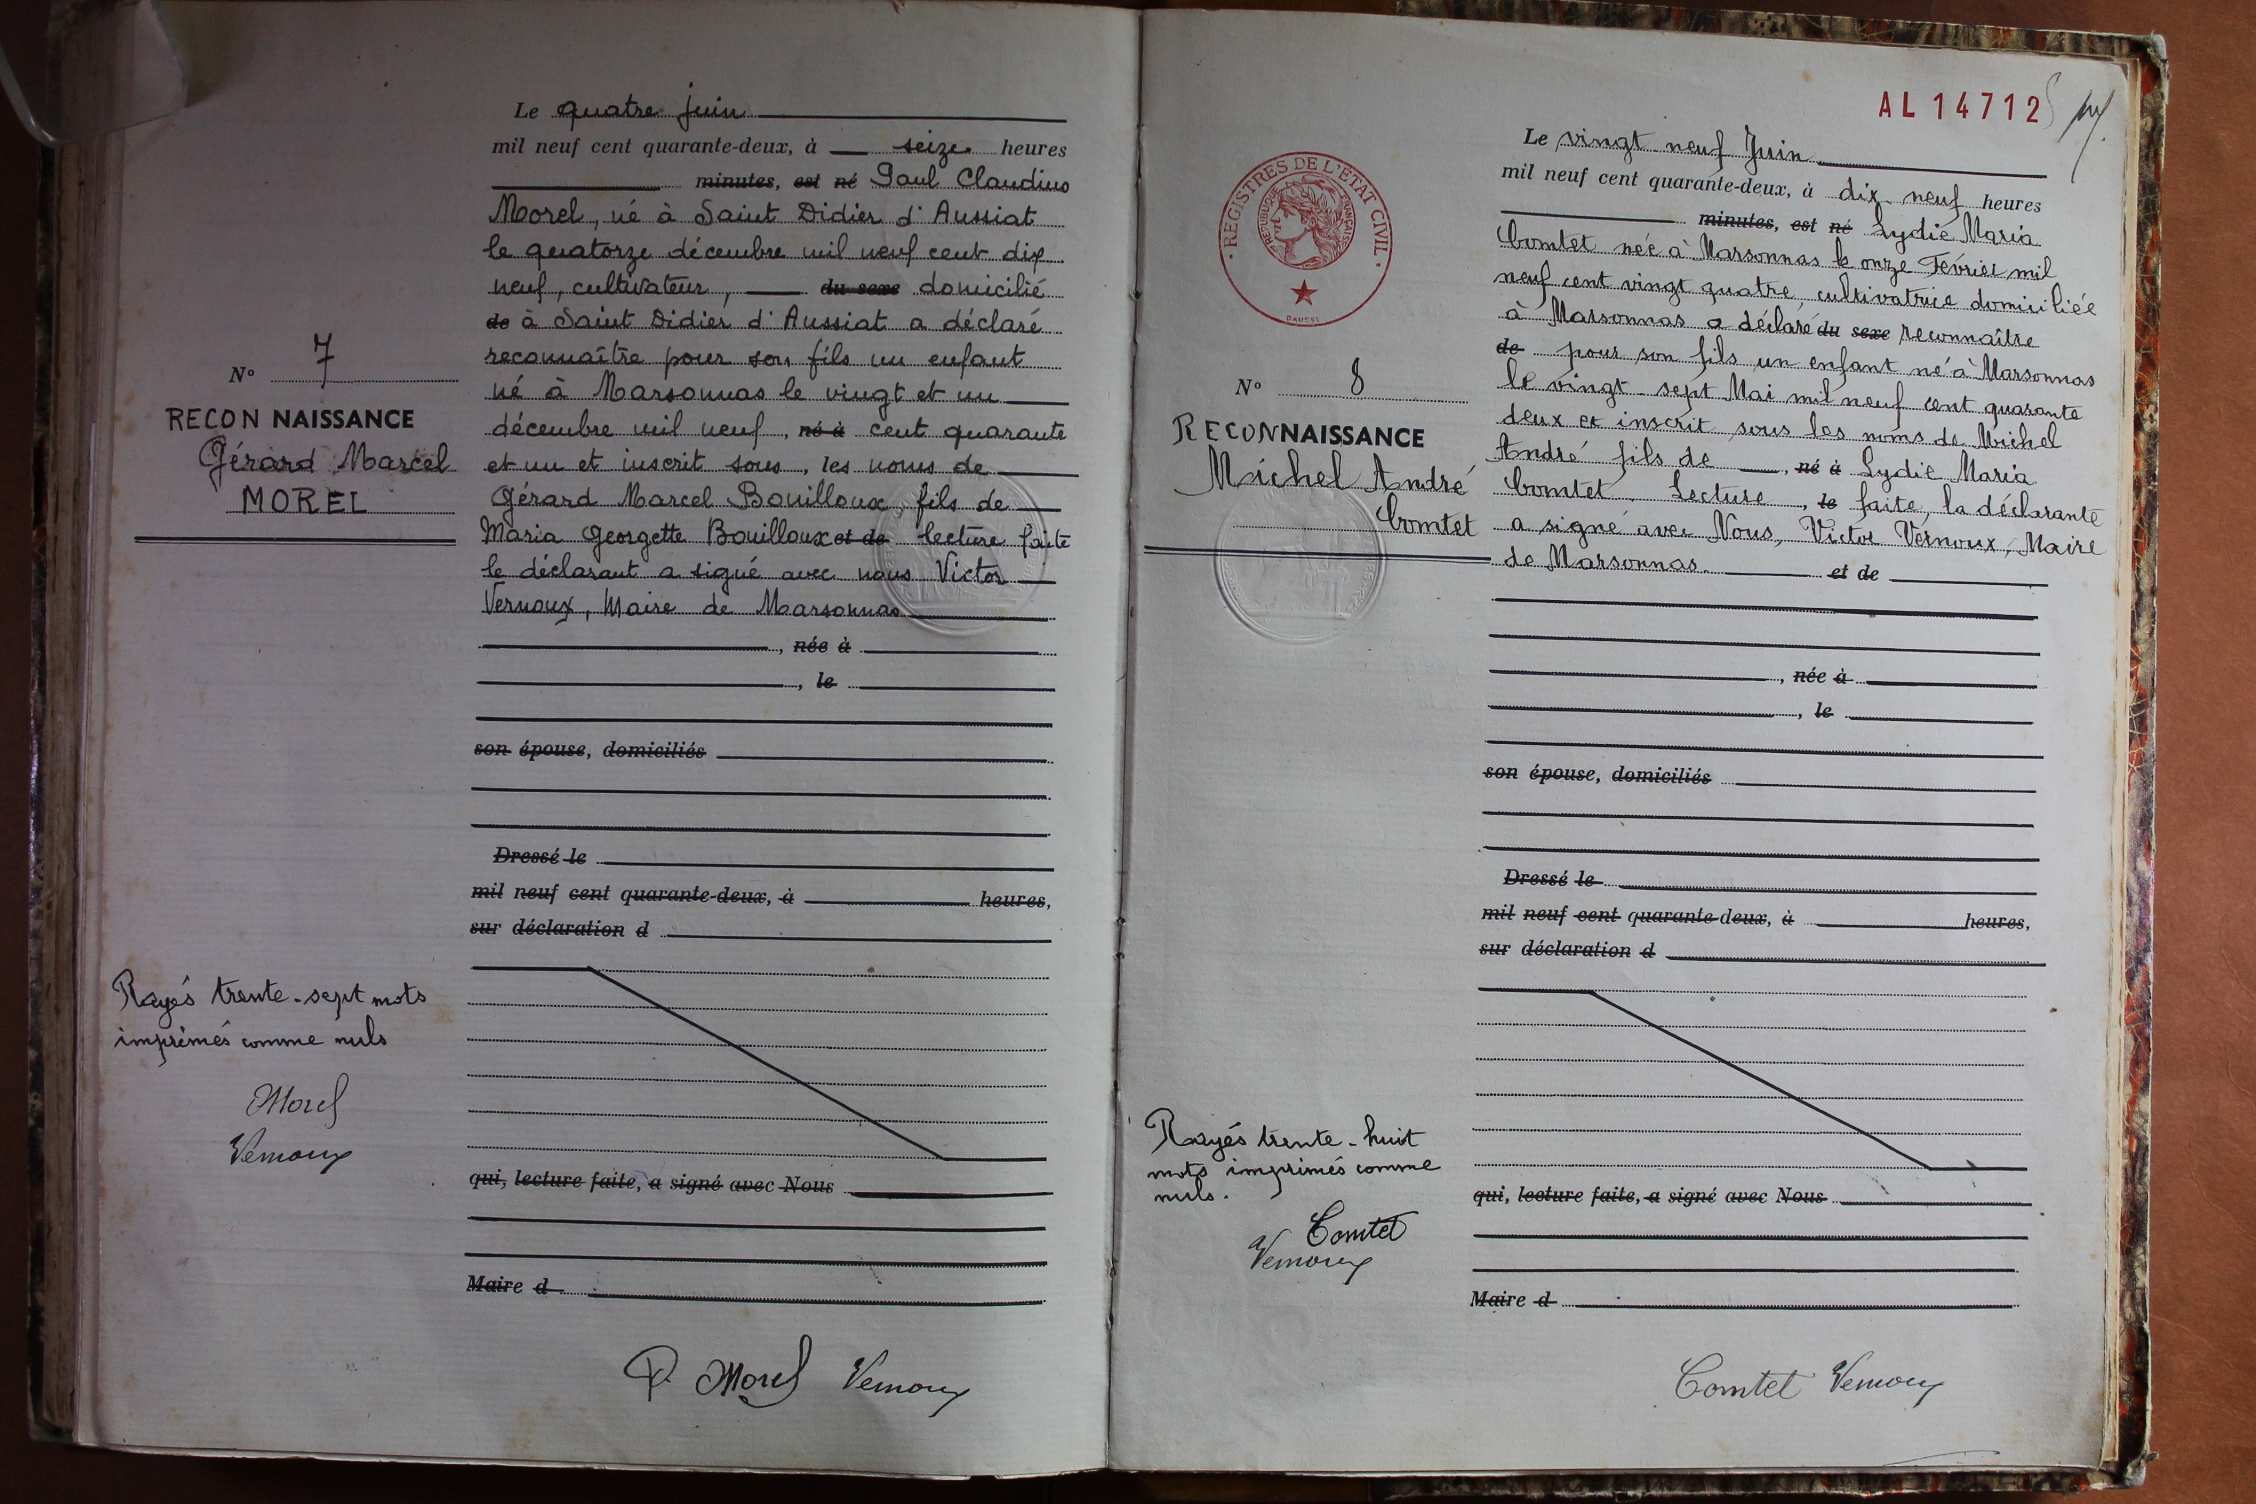 Le quatre juin
mil neuf cent quarante-deux, à seize heures
minutes, est né Paul Claudius
Morel, né à Saint Didier d'Aussiat
le quatorze décembre mil neuf cent dix
neuf, cultivateur, du sexe domicilié
de à Saint Didier d'Aussiat a déclaré
reconnaître pour son fils un enfant
né à Marsonnas le vingt et un
décembre mil neuf, né à cent quarante
et un et inscrit sous, les noms de
Gérard Marcel Bouilloux fils de
Maria Georgette Bouilloux et de lecture faite
le déclarant a signé avec nous Victor
Vernoux, Maire de Marsonnas
, née à
, le
son épouse, domiciliés
Dressé le
mil neuf cent quarante-deux, à heures,
sur déclaration d
qui, lecture faite, a signé avec Nous
Maire d
P. Morel Vernoux
N° 7
RECONNAISSANCE
Gérard Marcel
MOREL
Rayés trente-sept mots
imprimés comme nuls
Morel
Vernoux
AL 14712
REGISTRES DE L'ETAT CIVIL
REPUBLIQUE FRANÇAISE
N° 8
RECONNAISSANCE
Michel André
Comtet
Rayés trente-huit
mots imprimés comme
nuls.
Comtet
Vernoux
Le vingt-neuf Juin
mil neuf cent quarante-deux, à dix-neuf heures
minutes, est né Lydie Maria
Comtet née à Marsonnas le onze Février mil
neuf cent vingt quatre, cultivatrice domiciliée
à Marsonnas a déclaré du sexe reconnaître
de pour son fils un enfant né à Marsonnas
le vingt-sept Mai mil neuf cent quarante
deux et inscrit sous les noms de Michel
André fils de , né à Lydie Maria
Comtet. Lecture , le faite, la déclarante
a signé avec Nous, Victor Vernoux, Maire
de Marsonnas. et de
, née à
, le
son épouse, domiciliés
Dressé le
mil neuf cent quarante-deux, à heures,
sur déclaration d
qui, lecture faite, a signé avec Nous
Maire d
Comtet Vernoux